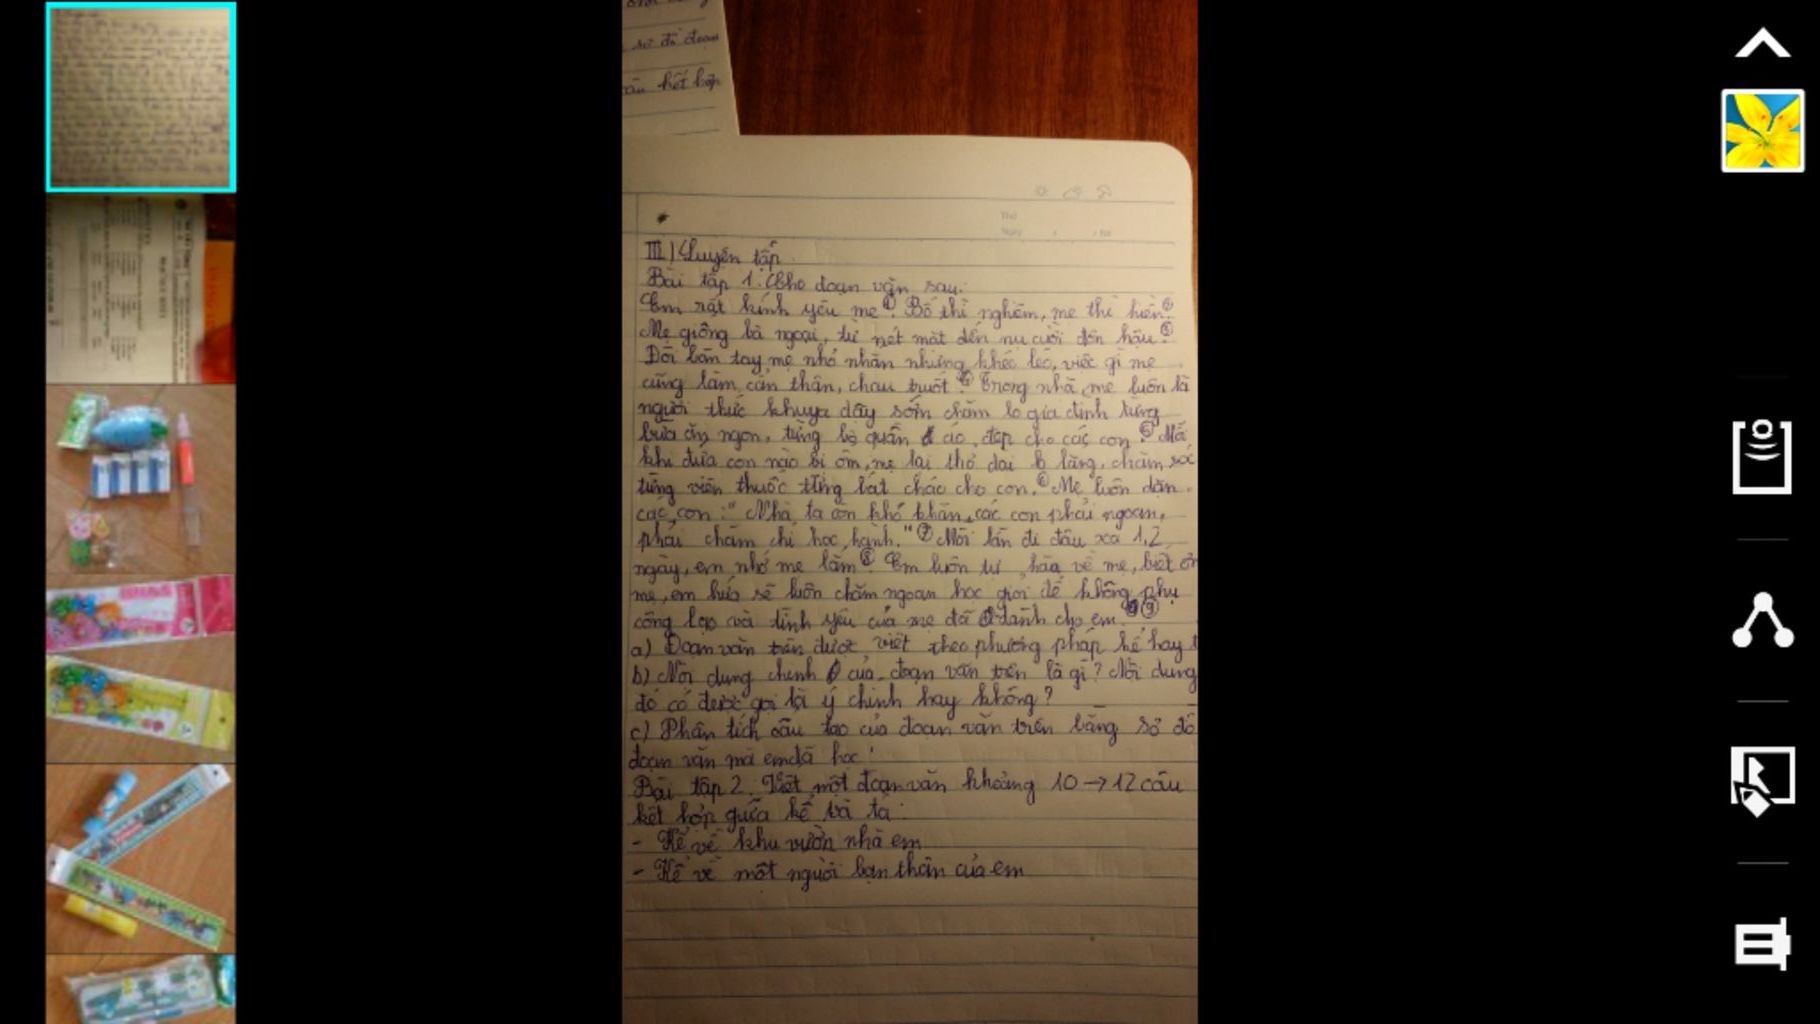 sơ đồ đoạn
câu kết hợp
Thứ
Ngày
III) Luyện tập
Bài tập 1: Cho đoạn văn sau:
Em rất kính yêu mẹ ①. Bố thì nghiêm, mẹ thì hiền ②.
Mẹ giống bà ngoại, từ nét mặt đến nụ cười đôn hậu ③.
Đôi bàn tay mẹ nhỏ nhắn nhưng khéo léo, việc gì mẹ
cũng làm cẩn thận, chau truốt ④. Trong nhà, mẹ luôn là
người thức khuya dậy sớm chăm lo gia đình từng
bữa ăn ngon, từng bộ quần áo đẹp cho các con ⑤. Mỗi
khi đứa con nào bị ốm, mẹ lại thở dài lo lắng, chăm sóc
từng viên thuốc từng bát cháo cho con. ⑥ Mẹ luôn dặn
các con: "Nhà ta còn khó khăn, các con phải ngoan,
phải chăm chỉ học hành." ⑦ Mỗi lần đi đâu xa 1,2
ngày, em nhớ mẹ lắm ⑧. Em luôn tự hào về mẹ, biết ơn
mẹ, em hứa sẽ luôn chăm ngoan học giỏi để không phụ
công lao và tình yêu của mẹ đã dành cho em. ⑨
a) Đoạn văn trên được viết theo phương pháp kể hay t
b) Nội dung chính của đoạn văn trên là gì? Nội dung
đó có được gọi là ý chính hay không?
c) Phân tích cấu tạo của đoạn văn trên bằng sơ đồ
đoạn văn mà em đã học!
Bài tập 2. Viết một đoạn văn khoảng 10 → 12 câu
kết hợp giữa kể và tả:
- Kể về khu vườn nhà em
- Kể về một người bạn thân của em